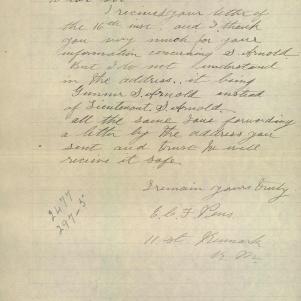 I received your letter of
the 16th inst, and I thank
you very much for your
information concerning S. Arnold
But I do not understand
in the address.. it being
Gunner S. Arnold instead
of Lieutenant. S. Arnold.
all the same I am forwarding
a letter by the address you
sent and trust he will
receive it safe.
I remain yours truly
E. C. F.
11 St.
2477
297-5